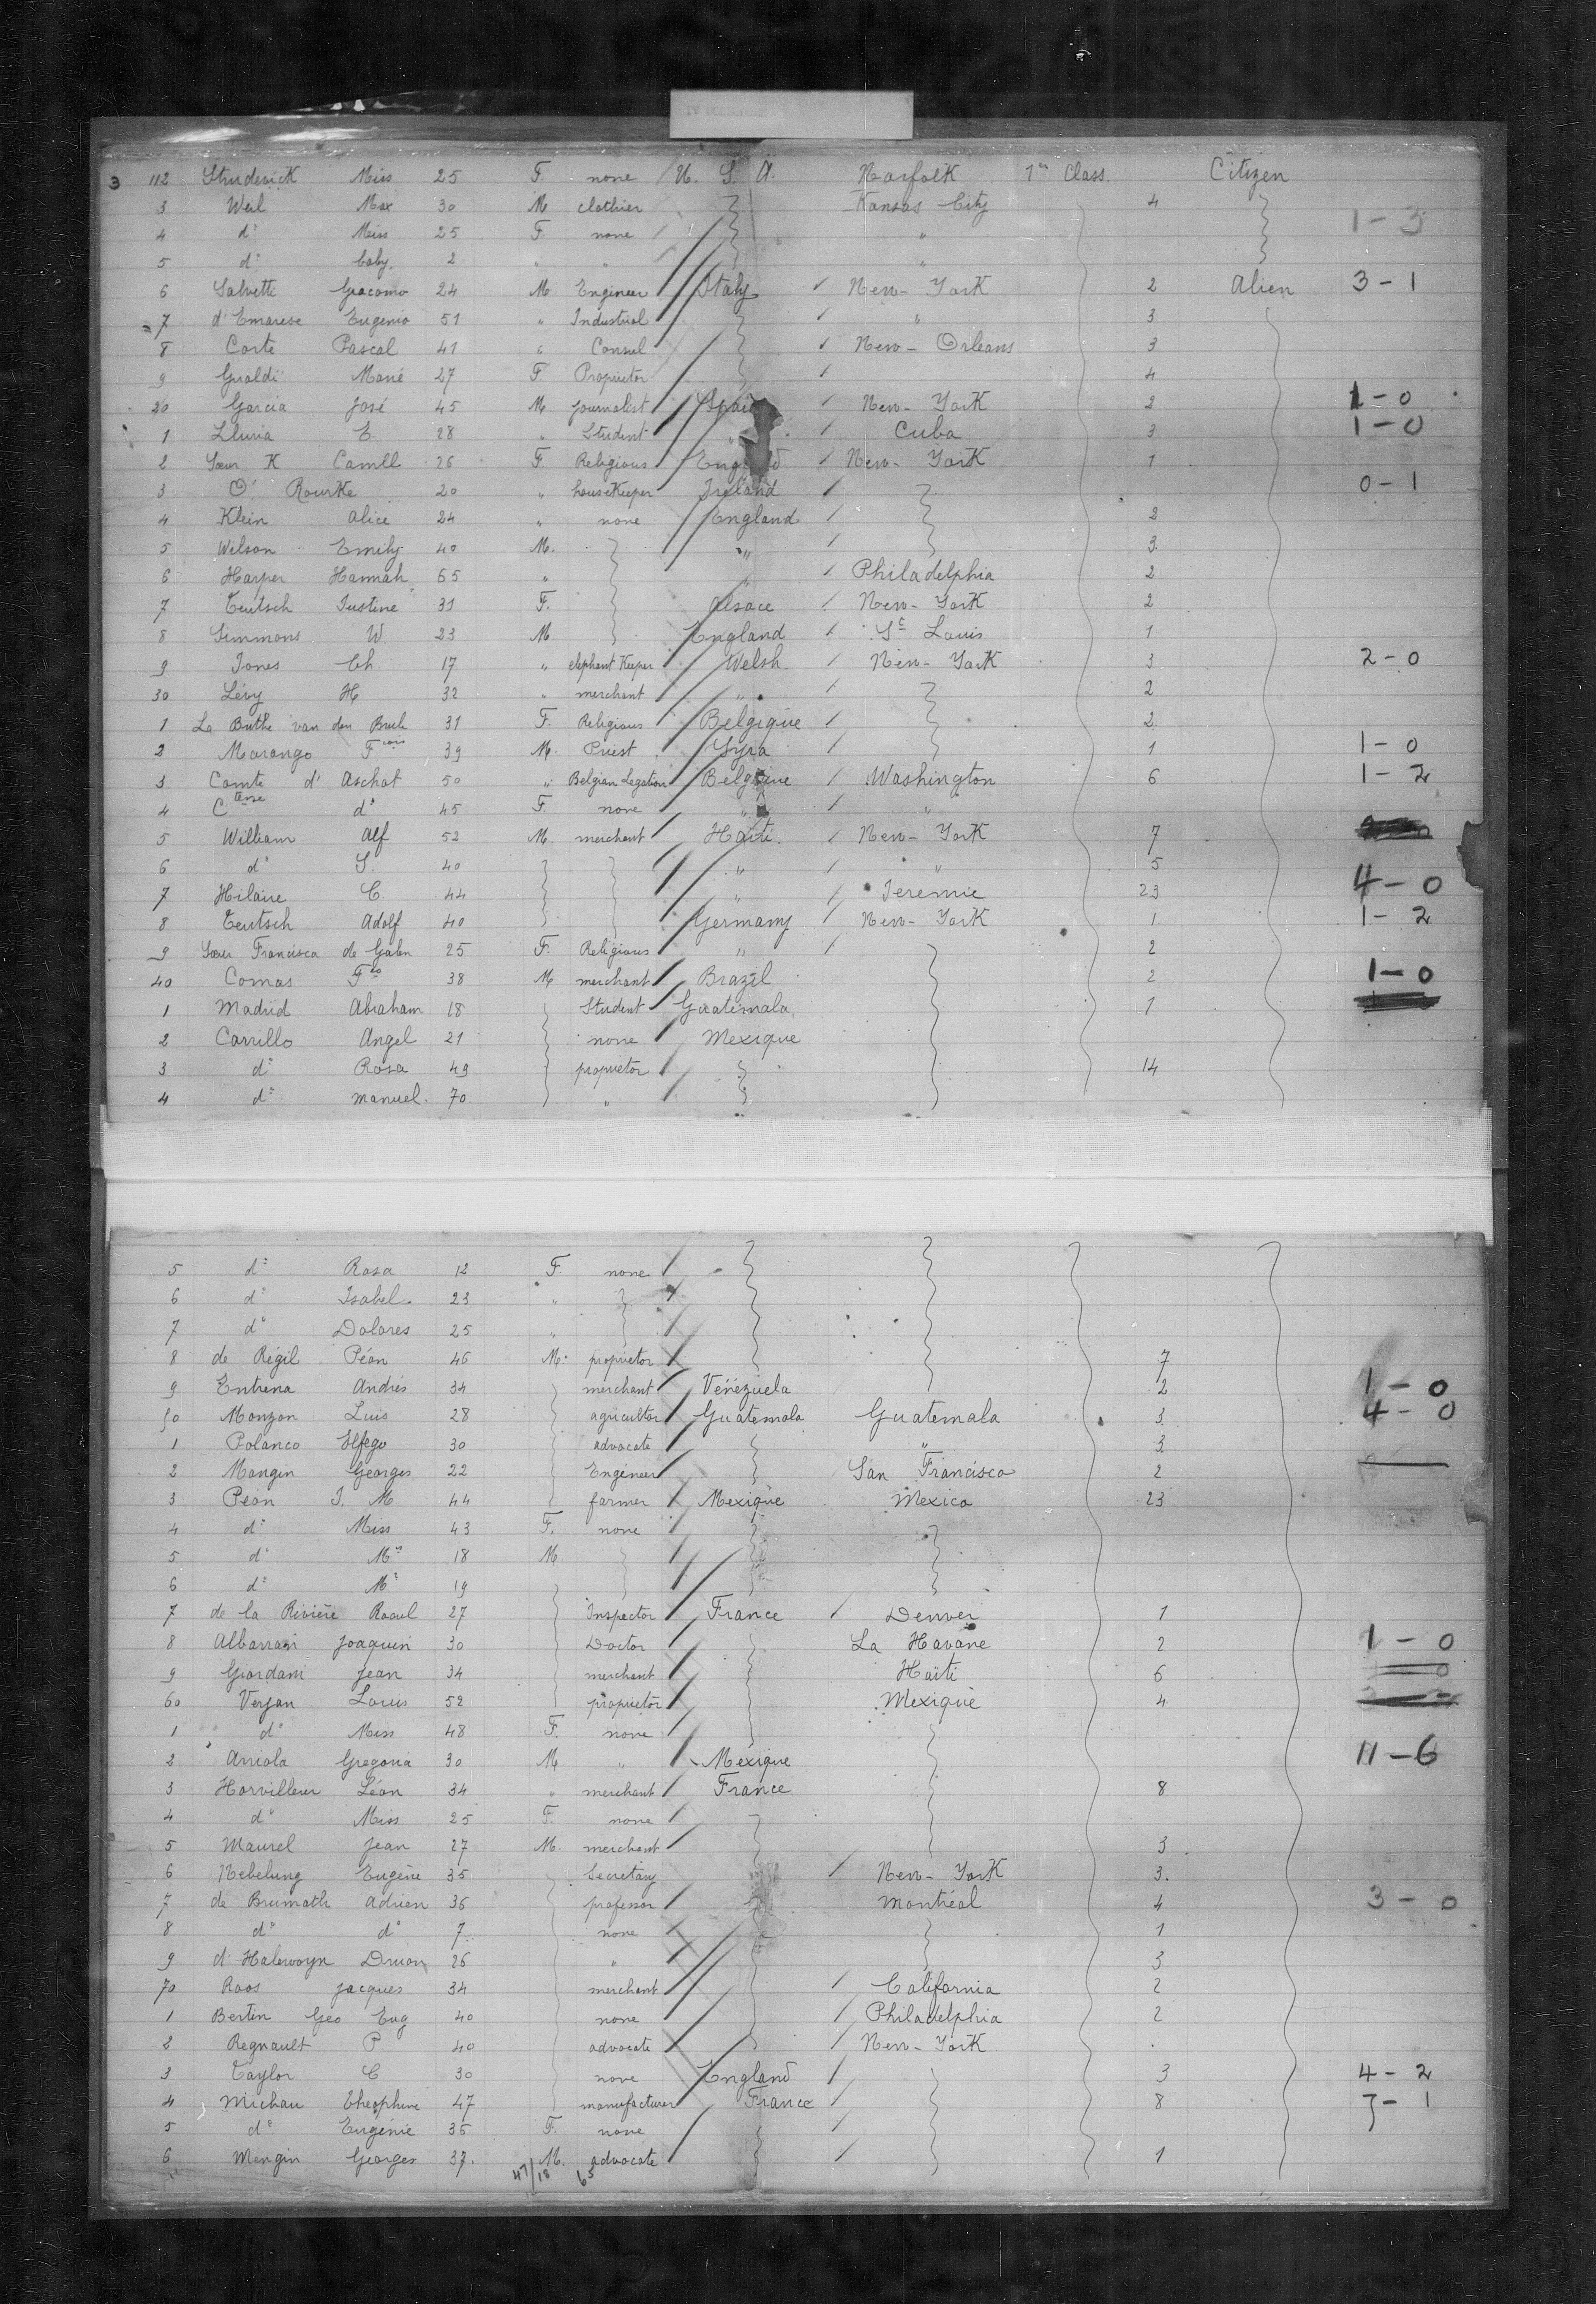 3 112 Studevick Miss 25 F. none U. S. A. Norfolk 1er Class. Citizen
3 Weil Max 30 M clothier Kansas City 4 1-3
4 d° Miss 25 F. none "
5 d° baby. 2 " " "
6 Salvette Giacomo 24 M Engineer Italy New-York 2 Alien 3-1
7 d'Emarese Eugenio 51 " Industrial " 3
8 Corte Pascal 41 " Consul New-Orleans 3
9 Gualdi Marié 27 F Proprietor 4
20 Garcia José 45 M journalist Spain New-York 2 1-0
1 Lluria E. 28 " Student " Cuba 3 1-0
2 Sœur K Camll 26 F Religious England New-York 1
3 O' Rourke 20 " houseKeeper Ireland 0-1
4 Klein Alice 24 " none England 2
5 Wilson Emily 40 M. " 3
6 Harper Hannah 65 " " Philadelphia 2
7 Teutsch Justine 31 F. Alsace New-York 2
8 Simmons W. 23 M England St Louis 1
9 Jones Ch. 17 " elephant Keeper Welsh New-York 3 2-0
30 Lévy H 32 " merchant " 2
1 La Buthe van den Bule 31 F. Religious Belgique 2
2 Marango Fcois 39 M. Priest Syra 1 1-0
3 Comte d' Aschot 50 " Belgian Legation Belgique Washington 6 1-2
4 Ctesse d° 45 F. none " "
5 William Alf 52 M. merchant Haïti. New-York 7
6 d° S. 40 " " 5
7 Hilaire C. 44 " Jeremie 23 4-0
8 Teutsch Adolf 40 Germany New-York 1 1-2
9 Sœur Francisca de Galen 25 F. Religious " 2
40 Comas Fco 38 M merchant Brazil 2 1-0
1 Madrid Abraham 18 Student Guatemala 1
2 Carrillo Angel 21 none Mexique
3 d° Rosa 49 proprietor 14
4 d° manuel. 70 "
5 d° Rosa 12 F. none
6 d° Isabel. 23 "
7 d° Dolores 25 "
8 de Régil Péon 46 M. proprietor 7
9 Entrena Andrés 34 merchant Vénézuela 2 1-0
50 Monzon Luis 28 agricultor Guatemala Guatemala 3 4-0
1 Polanco Elfego 30 advocate " 3
2 Mangin Georges 22 Engineer San Francisco 2
3 Peon J. M 44 farmer Mexique Mexico 23
4 d° Miss 43 F. none
5 d° Mr 18 M
6 d° Mr 19
7 de la Rivière Raoul 27 Inspector France Denver 1
8 Albarran Joaquin 30 Doctor La Havane 2 1-0
9 Giordani Jean 34 merchant Haïti 6
60 Verjan Louis 52 proprietor Mexique 4
1 d° Miss 48 F. none
2 Arriola Gregoria 30 M " Mexique 11-6
3 Horvilleur Léon 34 " merchant France 8
4 d° Miss 25 F. none
5 Maurel Jean 27 M. merchant 3
6 Nebelung Eugène 35 Secretary New-York 3.
7 de Brumath Adrien 36 professor Montréal 4 3-0
8 d° d° 7 none 1
9 d'Halewoyn Druon 26 " 3
70 Roos Jacques 34 merchant California 2
1 Bertin Geo Eug 40 none Philadelphia 2
2 Regnault P 40 advocate New-York
3 Taylor C 30 none England 3 4-2
4 Michau Theophine 47 manufacturer France 8 7-1
5 d° Eugénie 35 F. none
6 Mengin Georges 37. M. advocate 1
47/18 65